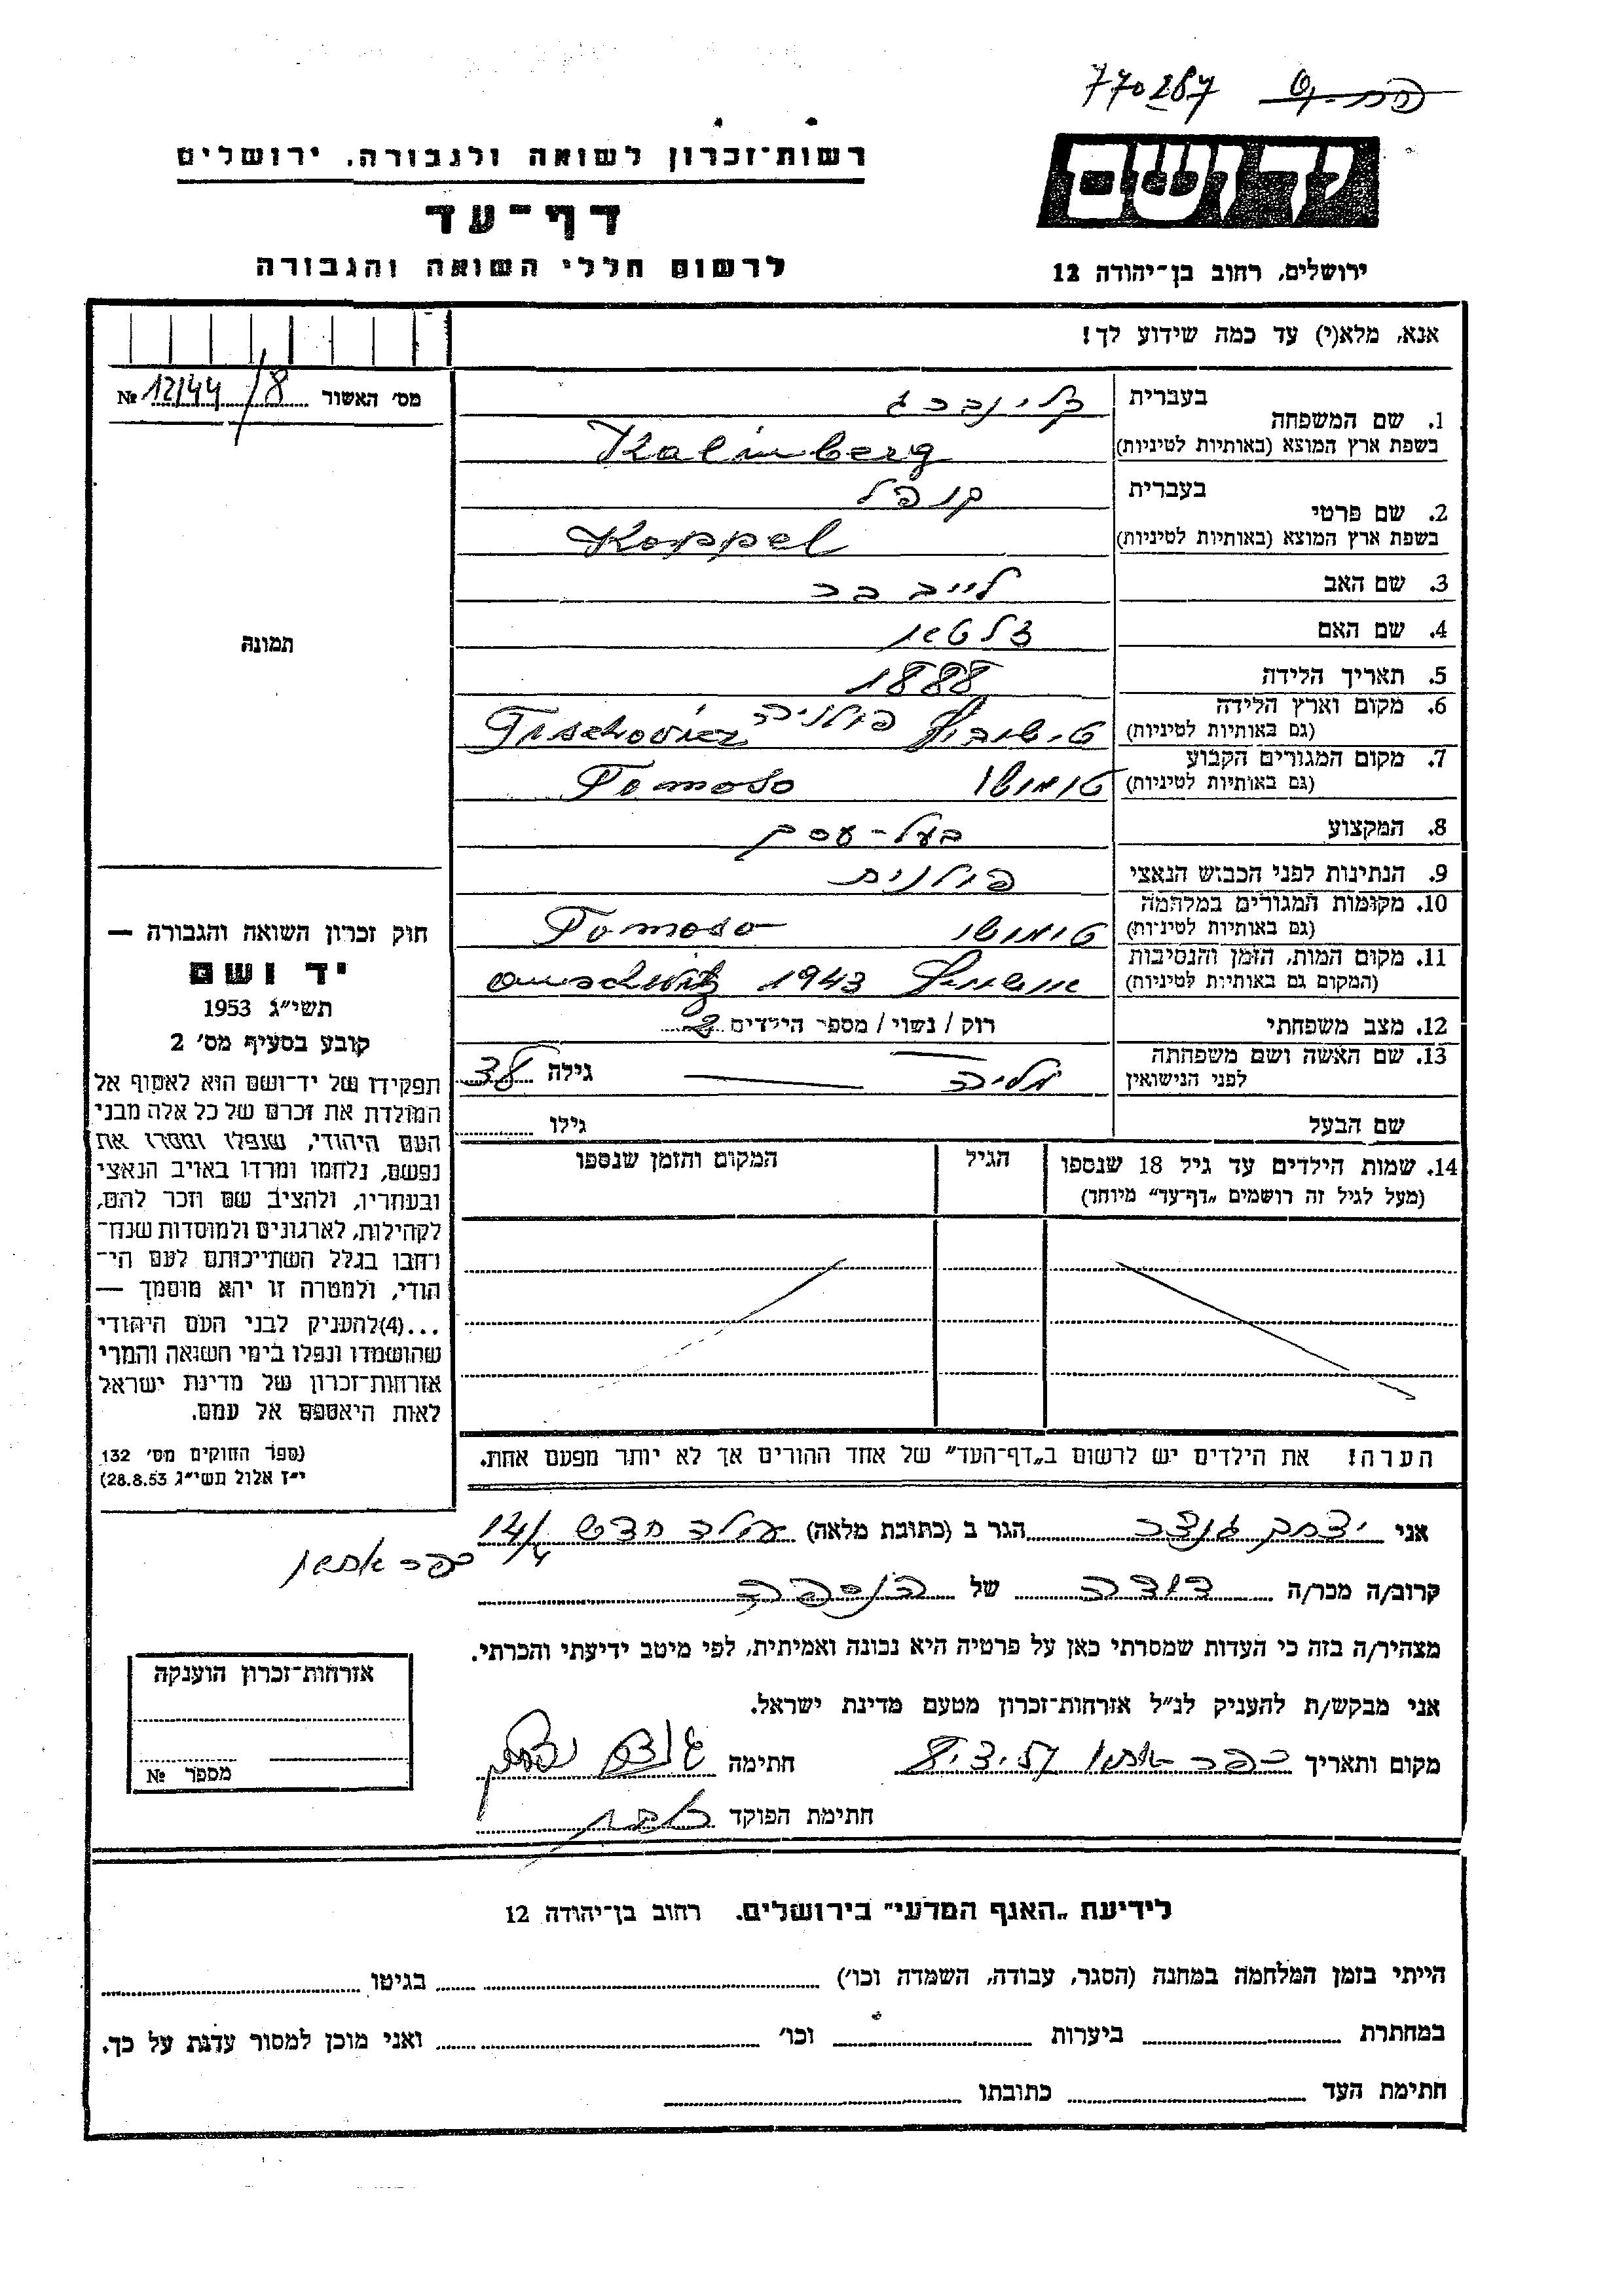 770287
יד ושם
רשות־זכרון לשואה ולגבורה, ירושלים
דף־עד
לרשום חללי השואה והגבורה
ירושלים, רחוב בן־יהודה 12
אנא, מלא(י) עד כמה שידוע לך!
מס׳ האשור 12144/8 №
תמונה
1. שם המשפחה
בעברית קלינברג
בשפת ארץ המוצא (באותיות לטיניות) Kalinberg
2. שם פרטי
בעברית קופל
בשפת ארץ המוצא (באותיות לטיניות) Koppel
3. שם האב לייב בר
4. שם האם זלטא
5. תאריך הלידה 1888
6. מקום וארץ הלידה
(גם באותיות לטיניות) פולניה Tischovicz
7. מקום המגורים הקבוע
(גם באותיות לטיניות) טומושו Tomoso
8. המקצוע בעל-עסק
9. הנתינות לפני הכבוש הנאצי פולנית
10. מקומות המגורים במלחמה
(גם באותיות לטיניות) טומושו Tomoso
11. מקום המות, הזמן והנסיבות
(המקום גם באותיות לטיניות) אושוויץ 1943 auschwitz
12. מצב משפחתי רוק / נשוי / מספר הילדים 2
13. שם האשה ושם משפחתה
לפני הנישואין גילה
שם הבעל גילו
14. שמות הילדים עד גיל 18 שנספו
(מעל לגיל זה רושמים „דף־עד” מיוחד)
הגיל
המקום והזמן שנספו
הערה! את הילדים יש לרשום ב„דף־העד” של אחד ההורים אך לא יותר מפעם אחת.
חוק זכרון השואה והגבורה —
יד ושם
תשי״ג 1953
קובע בסעיף מס׳ 2
תפקידו של יד־ושם הוא לאסוף אל
המולדת את זכרם של כל אלה מבני
העם היהודי, שנפלו ומסרו את
נפשם, נלחמו ומרדו באויב הנאצי
ובעוזריו, ולהציב שם וזכר להם,
לקהילות, לארגונים ולמוסדות שנח־
רחבו בגלל השתייכותם לעם הי־
הודי, ולמטרה זו יהא מוסמך —
...(4)להעניק לבני העם היהודי
שהושמדו ונפלו בימי השואה והמרי
אזרחות־זכרון של מדינת ישראל
לאות היאספם אל עמם.
(ספר החוקים מס׳ 132
י״ז אלול תשי״ג 28.8.53)
אני יצחק גנצר הגר ב (כתובת מלאה) עולה חדש 12/4
כפר אתא
קרוב/ה מכר/ה של הנספה
מצהיר/ה בזה כי העדות שמסרתי כאן על פרטיה היא נכונה ואמיתית, לפי מיטב ידיעתי והכרתי.
אני מבקש/ת להעניק לנ״ל אזרחות־זכרון מטעם מדינת ישראל.
מקום ותאריך כפר אתא חתימה
חתימת הפוקד
אזרחות־זכרון הוענקה
מספר №
לידיעת „האגף המדעי” בירושלים. רחוב בן־יהודה 12
הייתי בזמן המלחמה במחנה (הסגר, עבודה, השמדה וכו׳) בגיטו
במחתרת ביערות וכו׳ ואני מוכן למסור עדות על כך.
חתימת העד כתובתו